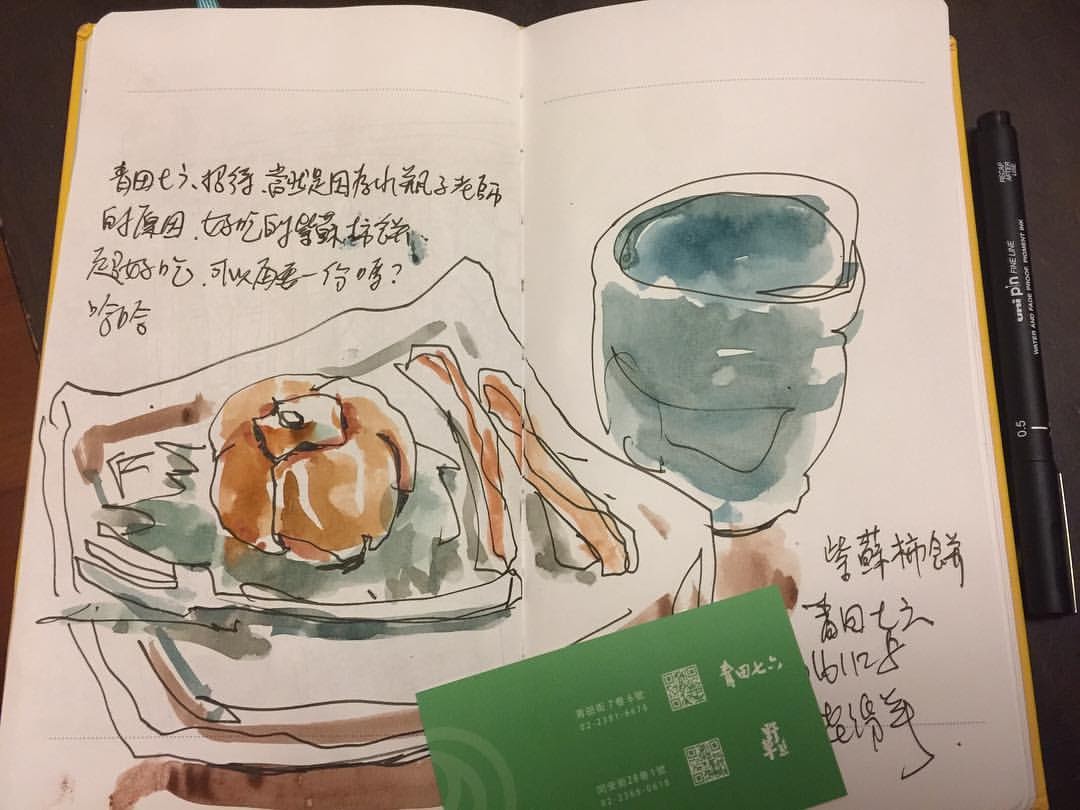 青田七六、招待、當然是因為水瓶子老師
的原因、好吃的紫蘇柿餅
超好吃、可以再要一份嗎？
哈哈
紫蘇柿餅
青田七六
青田七六
青田街7巷6號
02-2391-6676
同安街28巷1號
02-2369-0618
RECAP AFTER USE
uni pin FINE LINE
WATER AND FADE PROOF PIGMENT INK
0.5